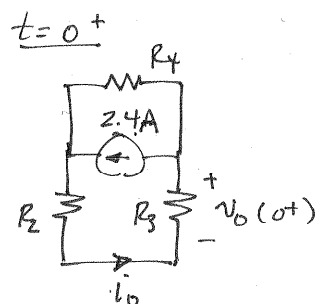 t=0⁺
R₄
2.4A
+
R₂
R₃
v₀(0+)
−
i₀